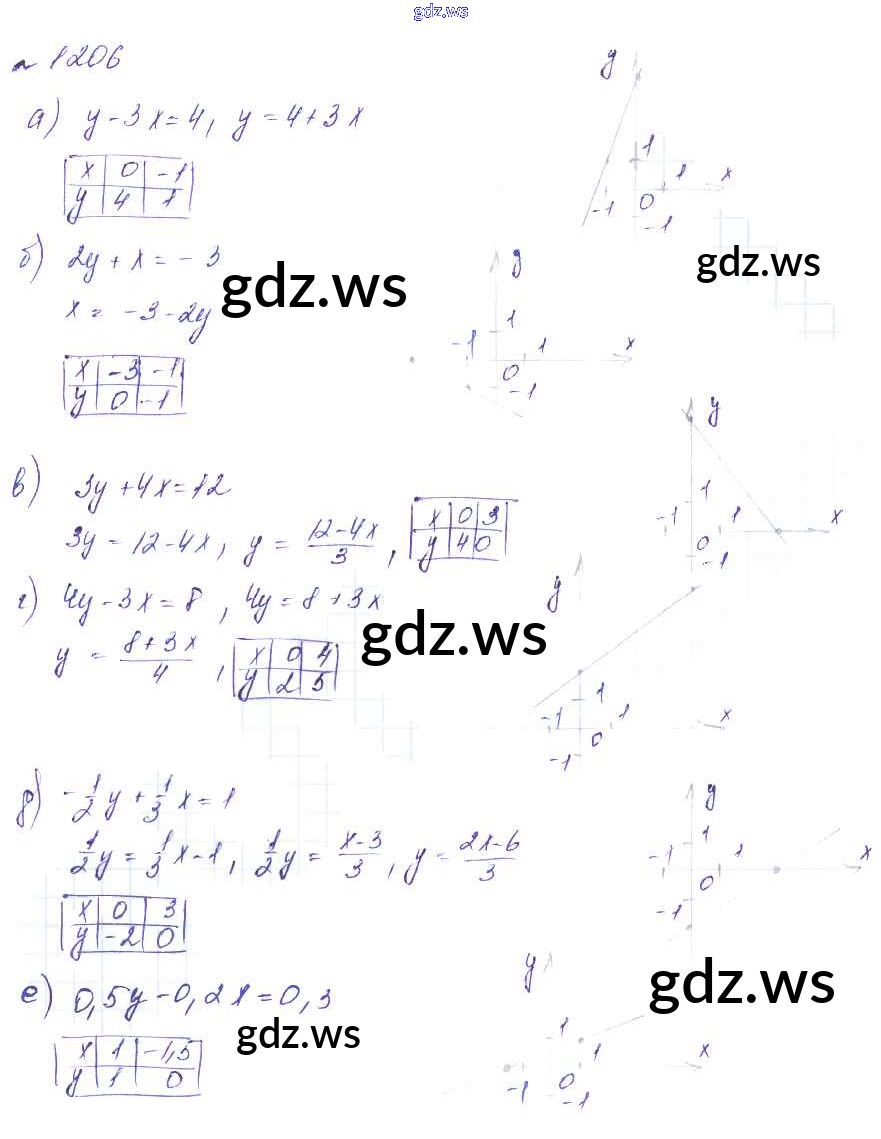 gdz.ws
№ 1206
а) y - 3x = 4, y = 4 + 3x
x 0 -1
y 4 1
y
1
1
x
-1
0
-1
б) 2y + x = - 3
x = -3 - 2y
x -3 -1
y 0 -1
gdz.ws
gdz.ws
y
1
-1
1
x
0
-1
в) 3y + 4x = 12
3y = 12 - 4x, y = (12-4x)/3,
x 0 3
y 4 0
y
1
-1
1
x
0
-1
г) 4y - 3x = 8, 4y = 8 + 3x
y = (8+3x)/4,
x 0 4
y 2 5
gdz.ws
y
1
-1
1
x
0
-1
д) -1/2 y + 1/3 x = 1
1/2 y = 1/3 x - 1, 1/2 y = (x-3)/3, y = (2x-6)/3
x 0 3
y -2 0
y
1
-1
1
x
0
-1
е) 0,5y - 0,2x = 0,3
x 1 -1,5
y 1 0
gdz.ws
gdz.ws
y
1
1
x
-1
0
-1